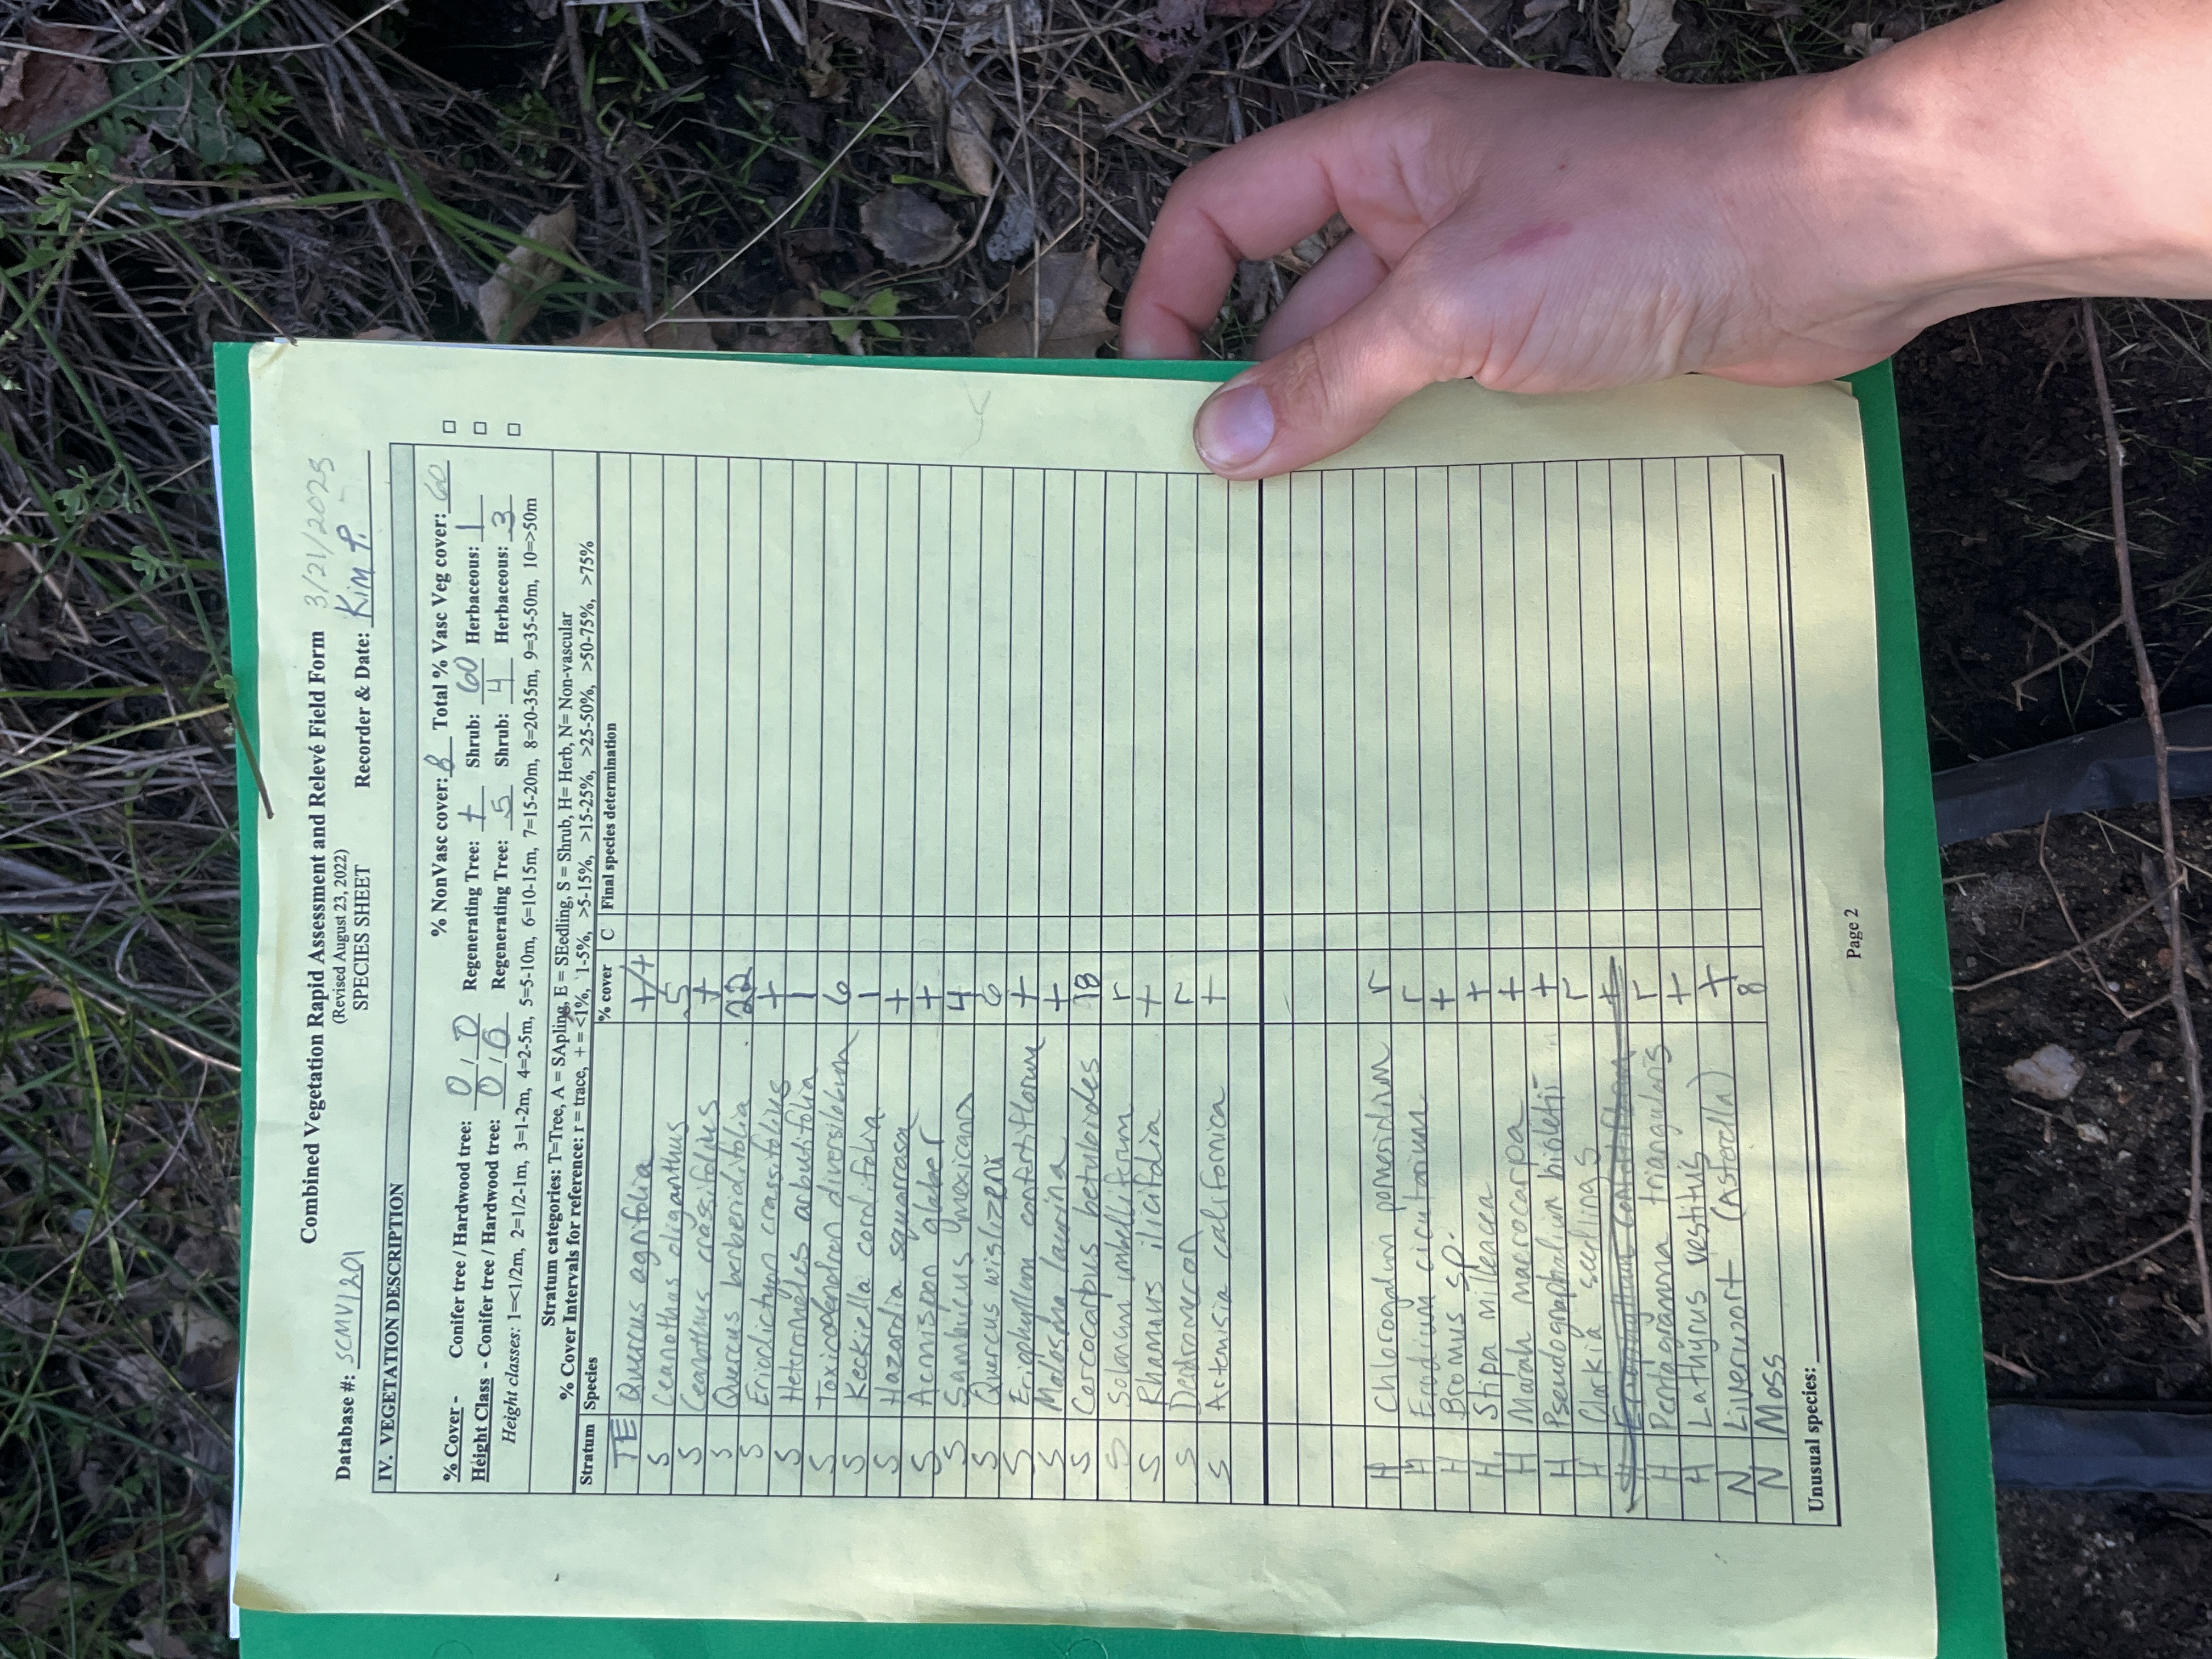 Combined Vegetation Rapid Assessment and Relevé Field Form 3/21/2025
(Revised August 23, 2022)
SPECIES SHEET
Database #: SCMV1201 Recorder & Date: Kim P.
IV. VEGETATION DESCRIPTION
% NonVasc cover: 8 Total % Vasc Veg cover: 60
% Cover - Conifer tree / Hardwood tree: 0 / 0 Regenerating Tree: + Shrub: 60 Herbaceous: 1
Height Class - Conifer tree / Hardwood tree: 0 / 0 Regenerating Tree: 5 Shrub: 4 Herbaceous: 3
Height classes: 1=<1/2m, 2=1/2-1m, 3=1-2m, 4=2-5m, 5=5-10m, 6=10-15m, 7=15-20m, 8=20-35m, 9=35-50m, 10=>50m
Stratum categories: T=Tree, A = SApling, E = SEedling, S = Shrub, H= Herb, N= Non-vascular
% Cover Intervals for reference: r = trace, + = <1%, 1-5%, >5-15%, >15-25%, >25-50%, >50-75%, >75%
Stratum Species % cover C Final species determination
TE Quercus agrifolia +/+
S Ceanothus oliganthus 5
S Ceanothus crassifolius +
S Quercus berberidifolia 22
S Eriodictyon crassifolius +
S Heteromeles arbutifolia 1
S Toxicodendron diversilobum 6
S Keckiella cordifolia 1
S Hazardia squarrosa +
S Acmispon glaber +
S Sambucus mexicana 4
S Quercus wislizeni 6
S Eriophyllum confertiflorum +
S Malosma laurina +
S Cercocarpus betuloides 18
S Solanum umbelliferum r
S Rhamnus ilicifolia +
S Dendromecon r
S Artemisia californica +
H Chlorogalum pomeridium r
H Erodium cicutarium r
H Bromus sp. +
H Stipa millencea +
H Marah macrocarpa +
H Pseudognaphalium bioletii +
H Clarkia seedlings r
H Eriophyllum confertiflorum +
H Pentagramma triangularis r
H Lathyrus vestitus +
N Liverwort (Asterella) +
N Moss 8
Unusual species:
Page 2